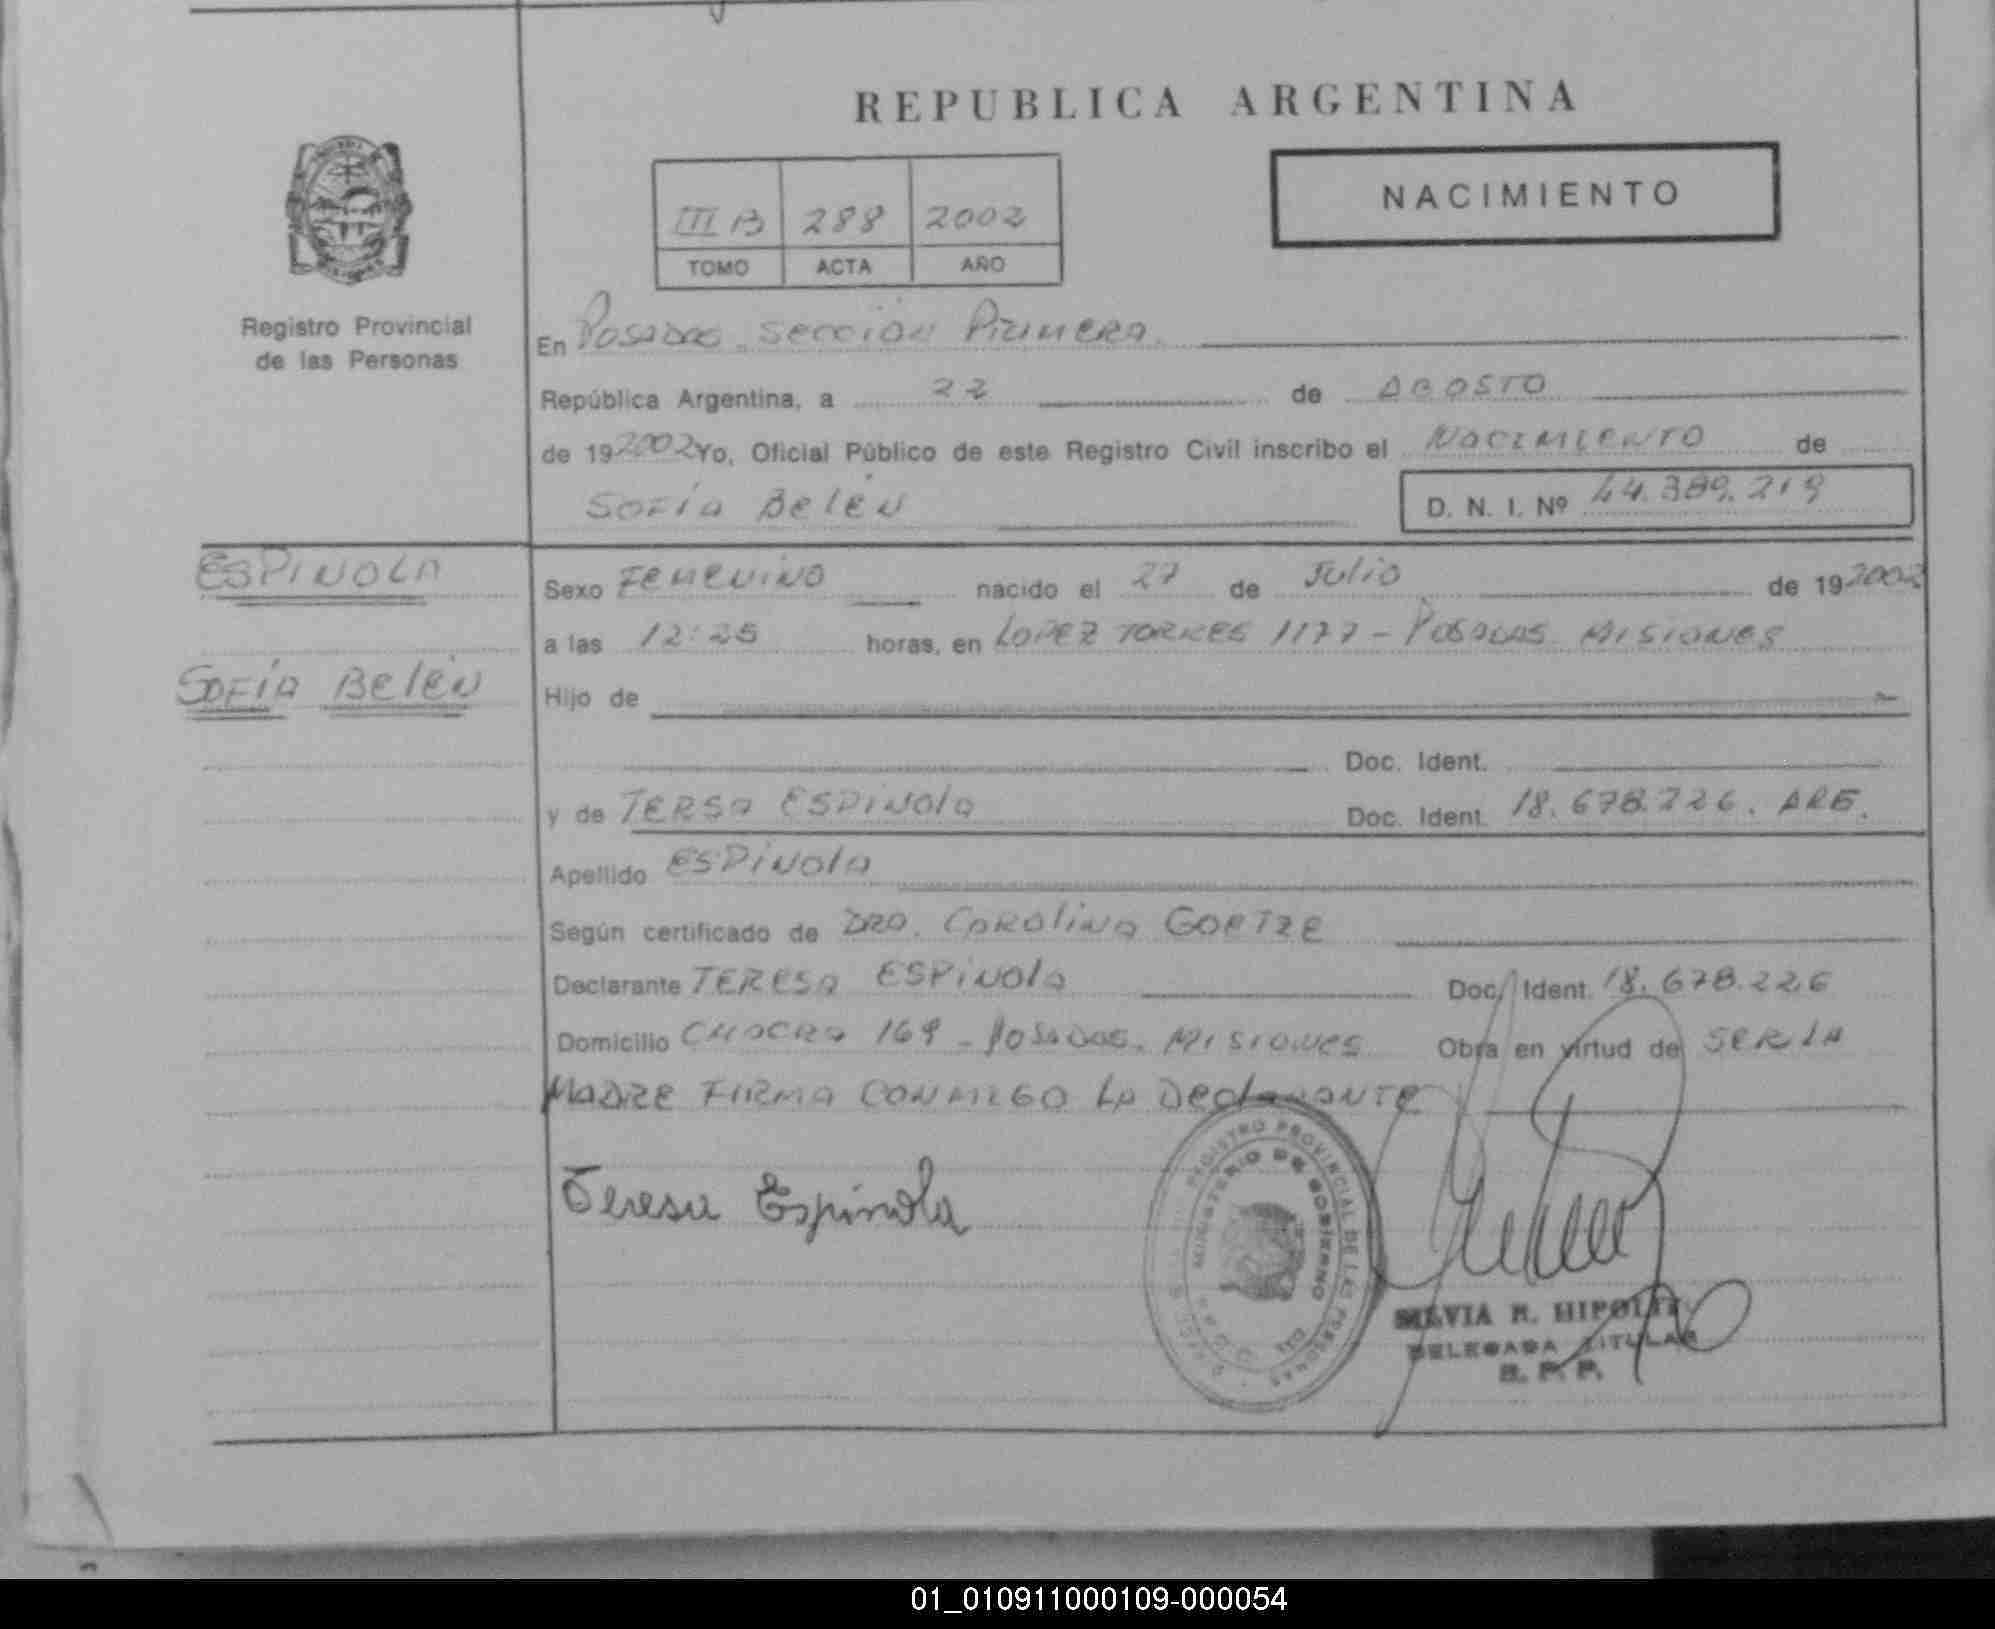 REPUBLICA ARGENTINA
NACIMIENTO
III B 288 2002
TOMO ACTA AÑO
Registro Provincial
de las Personas
En Posadas Sección Primera
República Argentina, a 22 de AGOSTO
de 19 2002 Yo, Oficial Público de este Registro Civil inscribo el NACIMIENTO de
SOFÍA Belén D. N. I. Nº 44.389.219
ESPINOLA
SOFÍA Belén
Sexo Femenino nacido el 27 de Julio de 19 2002
a las 12:25 horas, en LOPEZ TORRES 1177 - Posadas Misiones
Hijo de
Doc. Ident.
y de TERSA ESPINOLA Doc. Ident. 18.678.226. ARG.
Apellido ESPINOLA
Según certificado de DRA. CAROLINA GOETZE
Declarante TERESA ESPINOLA Doc. Ident. 18.678.226
Domicilio CHACRA 169 - Posadas. Misiones Obra en virtud de SER LA
MADRE FIRMA CONMIGO LA DeclARANTE
Teresa Espinola
REGISTRO PROVINCIAL DE LAS PERSONAS
MINISTERIO DE GOBIERNO
SILVIA R.
DELEGADA TITULAR
R. P. P.
01_010911000109-000054